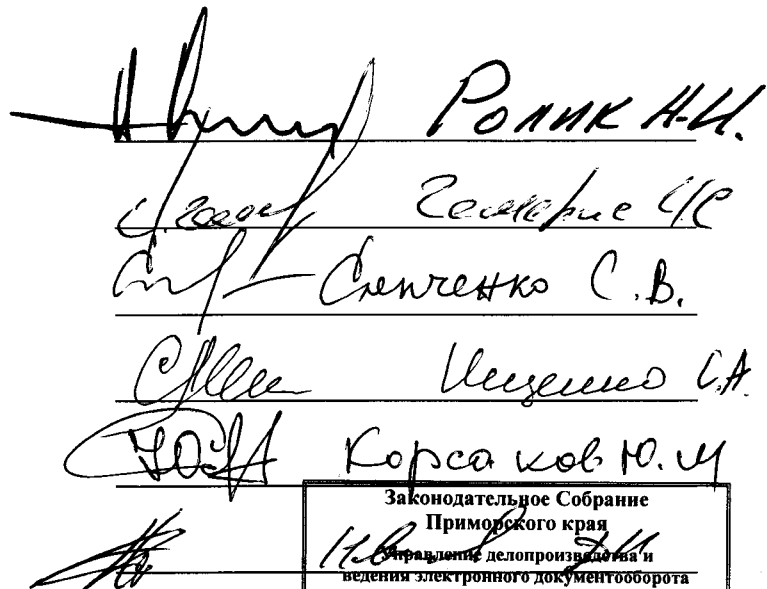 Ролик Н.И.
Чемерис И.С.
Слепченко С.В.
Ищенко С.А.
Корсаков Ю.М
Законодательное Собрание
Приморского края
Управление делопроизводства и
ведения электронного документооборота